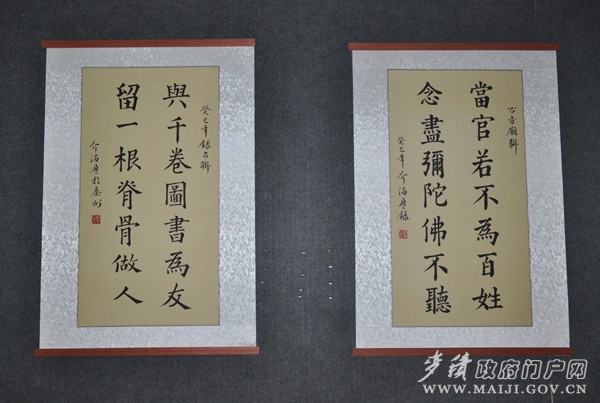 當官若不為百姓
念盡彌陀佛不聽
古寺廟聯
癸巳年
錄
與千卷圖書為友
留一根脊骨做人
癸巳年錄古聯
麦积政府门户网
WWW.MAIJI.GOV.CN